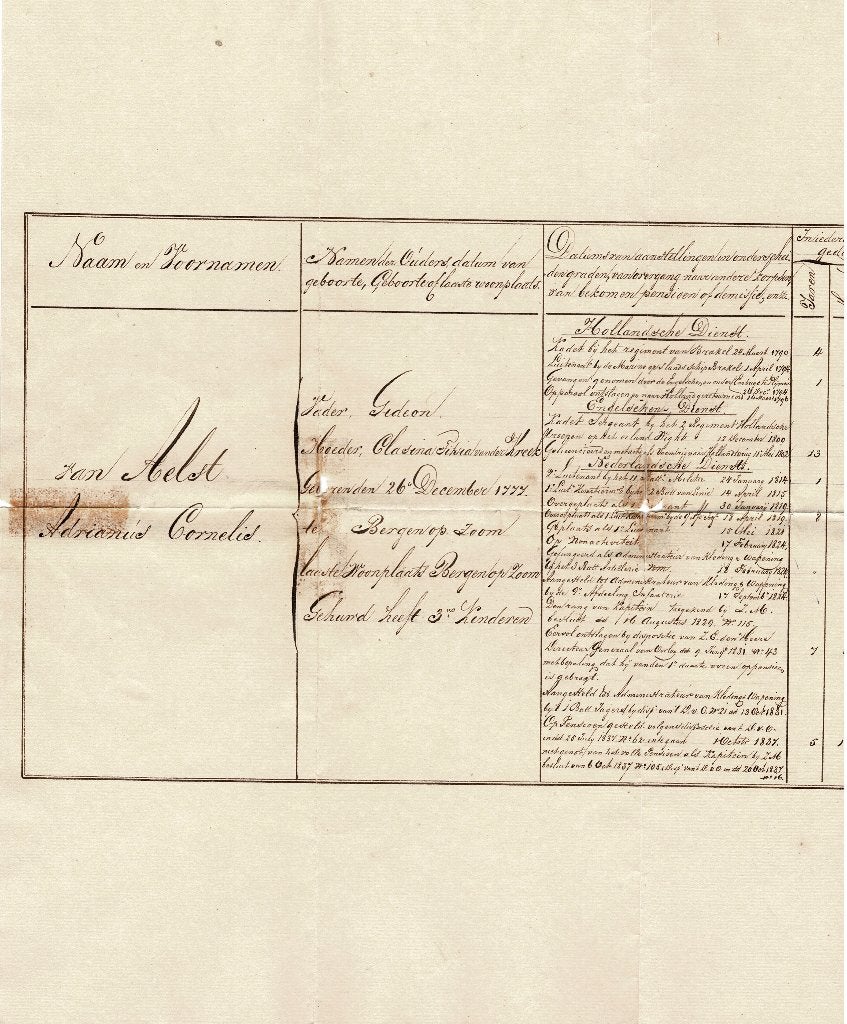 Naam en Voornamen.
Namen der Ouders, datum van
geboorte, Geboorte of laatste woonplaats.
Datums van aanstellingen in onderschei
dene graden, van overgang naar andere Korpsen,
van bekomen pensioen of demissie, en z.
In ieder
ged
Jaren
van Aelst
Adrianus Cornelis.
Vader, Gedeon.
Moeder, Clasina van der Kreek
Geboren den 26e December 1777.
te Bergen op Zoom
laatste Woonplaats Bergen op Zoom
Gehuwd heeft 3 Kinderen
Hollandsche Dienst.
Kadet bij het regiment van Brakel 24 Maart 1790
4
Luitenant bij de Marine op s'lands schip Brakel 1 April 1794
Gevangen genomen door de Engelschen
1
Op parool ontslagen en naar Holland
Engelschen Dienst
Kadet Sergeant bij het 2e Regiment Hollandsche
Troepen op het eiland Wight 12 December 1800
13
Nederlandsche Dienst
2e Luitenant bij het Batt. Militie 24 January 1814
1
1e Luit. Kwartierm. bij het 2 Batt van Linie 14 April 1815
Overgeplaatst als 30 January 1819
8
18 April 1819
Geplaatst als 1e Luitenant 10 Mei 1821
Op Nonactiviteit 17 February 1824
als Administrateur van Kleding & Wapening
bij het 3 Batt Artillerie
Aangesteld tot Administrateur van Kleding & Wapening
bij de 9e Afdeeling Infanterie 17 September
Den rang van Kapitein toegekend bij Z. M.
besluit dd 16 Augustus 1829. No 116.
Eervol ontslagen bij dispositie van Z. E. den Heere
Directeur Generaal van Oorlog dd 9 Juny 1831 No 43
7
met bepaling, dat hij van den 1e daarte voren op pensioen
is gebragt.
Aangesteld tot Administrateur van Kleding & Wapening
bij 't 1 Batt Jagers bij disp. van 't D. v. O. No 21 dd 13 Oct 1831.
Op Pensioen gesteld volgens dispositie van 't D. v. O.
dd 28 July 1837 No 62 integaan 1 October 1837.
5
1
met genot van het volle Pensioen als Kapitein bij Z. M.
besluit van 6 Oct 1837 No 105 & disp. van 't D. v. O dd 20 Oct 1837